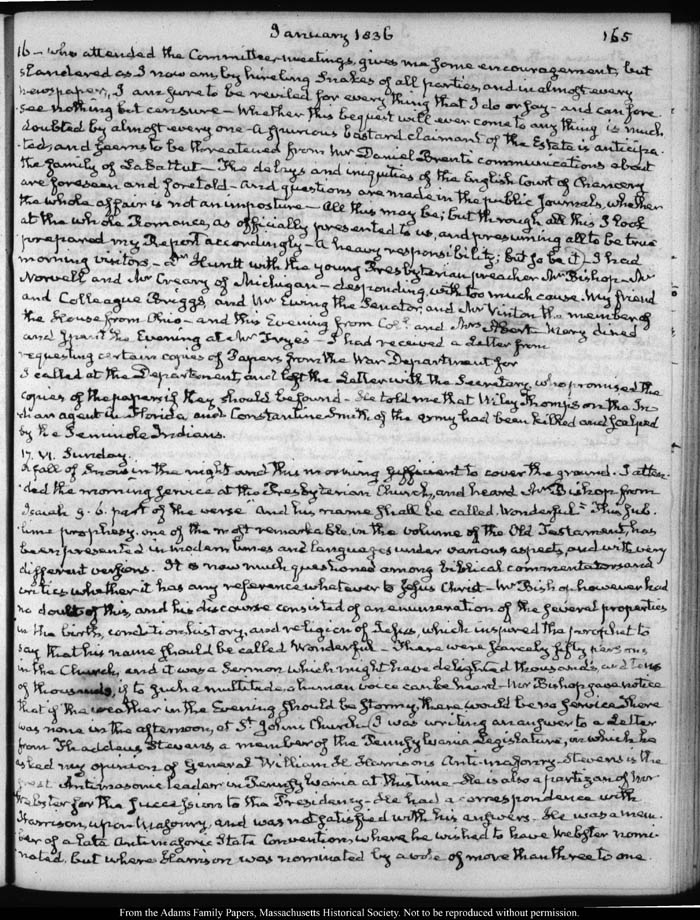 January 1836
165
16 – who attended the Committee, meetings, gives me some encouragement, but
slandered as I now am, by hireling Snakes of all parties, and in almost every
newspaper, I am sure to be reviled for every thing that I do or say – and can fore-
see nothing but censure – Whether this bequest will ever come to any thing is much
doubted by almost every one – A spurious bastard claimant of the Estate is anticipa-
ted, and seems to be threatened from Mr Daniel Brent's communications about
the family of La Battut – The delays and iniquities of the English Court of Chancery
are foreseen and foretold – And questions are made in the public Journals, whether
the whole affair is not an imposture – All this may be; but through all this I look
at the whole Romance, as officially presented to us, and presuming all to be true
prepared my Report accordingly – a heavy responsibility; but so be it – I had
morning visitors – Dr Huntt with the young Presbyterian preacher Mr Bishop – Mr
Norvell and Mr Creary of Michigan – desponding, with too much cause. My friend
and Colleague Briggs, and Mr Ewing the Senator, and Mr Vinton the member of
the House from Ohio – and this Evening from Col. and Mrs Abert. Mary dined
and spent the Evening at Mr Frye's – I had received a Letter from
requesting certain copies of Papers from the War Department for
I called at the Department, and left the Letter with the Secretary, who promised the
copies of the papers if they should be found – He told me that Wiley Thompson the In-
dian agent in Florida and Constantine Smith of the army had been killed and scalped
by the Seminole Indians.
17. VI. Sunday.
A fall of Snow in the night and this morning sufficient to cover the ground. I atten-
ded the morning service at the Presbyterian Church, and heard Mr Bishop from
Isaiah 9. 6. part of the verse And his name shall be called Wonderful – This sub-
lime prophesy, one of the most remarkable, in the volume of the Old Testament, has
been presented in modern times and languages under various aspects, and with very
different versions. It is now much questioned among biblical commentators and
critics whether it has any reference whatever to Jesus Christ – Mr Bishop however had
no doubt of this, and his discourse consisted of an enumeration of the several properties
in the birth, condition, history, and religion of Jesus, which inspired the prophet to
say that his name should be called Wonderful – There were scarcely fifty persons
in the Church, and it was a Sermon which might have delighted thousands, and tens
of thousands, if to such a multitude, a human voice can be heard – Mr Bishop gave notice
that if the weather in the Evening should be stormy, there would be no service There
was none in the afternoon, at St John's Church. I was writing an answer to a Letter
from Thaddeus Stevens, a member of the Pennsylvania Legislature, in which he
asked my opinion of General William H. Harrison's Anti-masonry – Stevens is the
great Antimasonic leader in Pennsylvania at this time – He is also a partizan of Mr
Webster for the succession to the Presidency – He had a correspondence with
Harrison, upon Masonry, and was not satisfied with his answers. He was a mem-
ber of a late Anti-masonic State Convention, where he wished to have Webster nomi-
nated, but where Harrison was nominated by a vote of more than three to one.
From the Adams Family Papers, Massachusetts Historical Society. Not to be reproduced without permission.